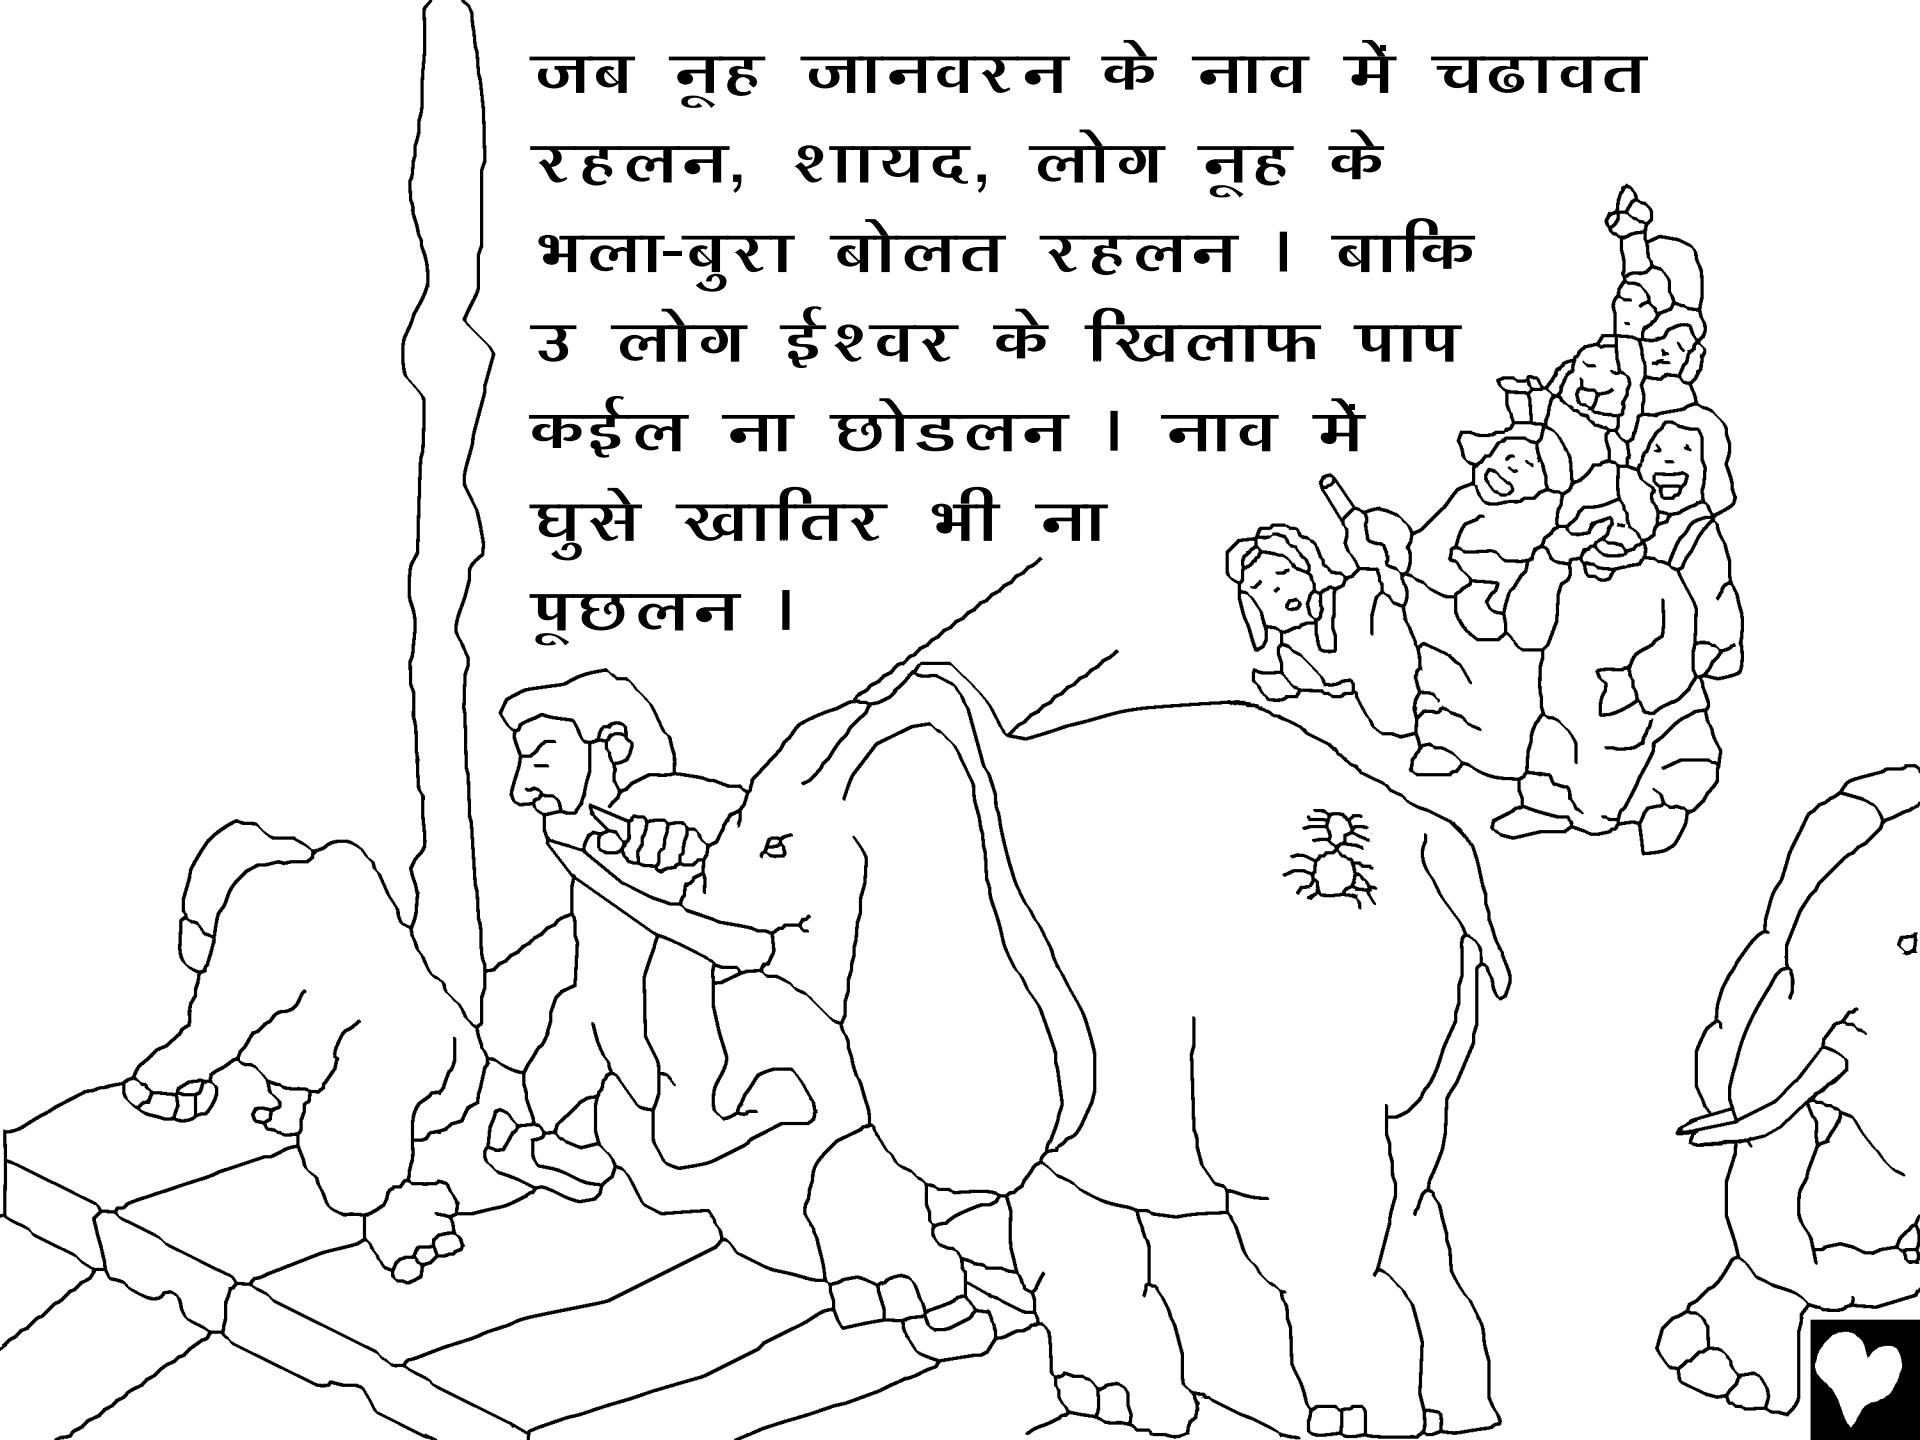 जब नूह जानवरन के नाव में चढावत
रहलन, शायद, लोग नूह के
भला-बुरा बोलत रहलन । बाकि
उ लोग ईश्वर के खिलाफ पाप
कईल ना छोडलन । नाव में
घुसे खातिर भी ना
पूछलन ।